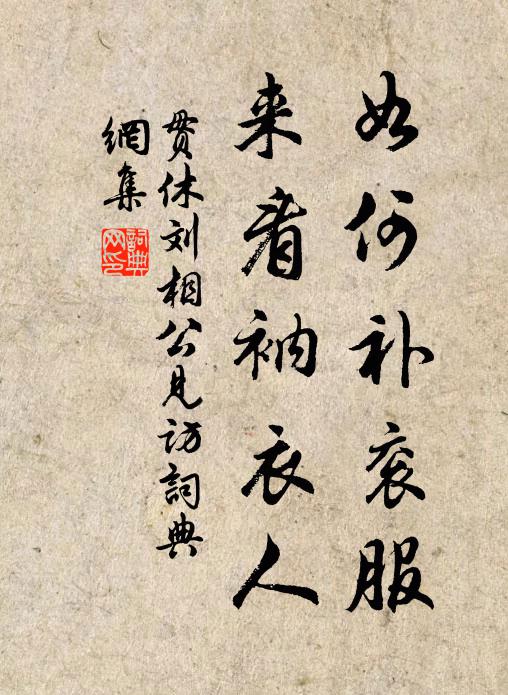 如何补衮服
来看衲衣人
贯休刘相公见访詞典
網集
詞典
网印